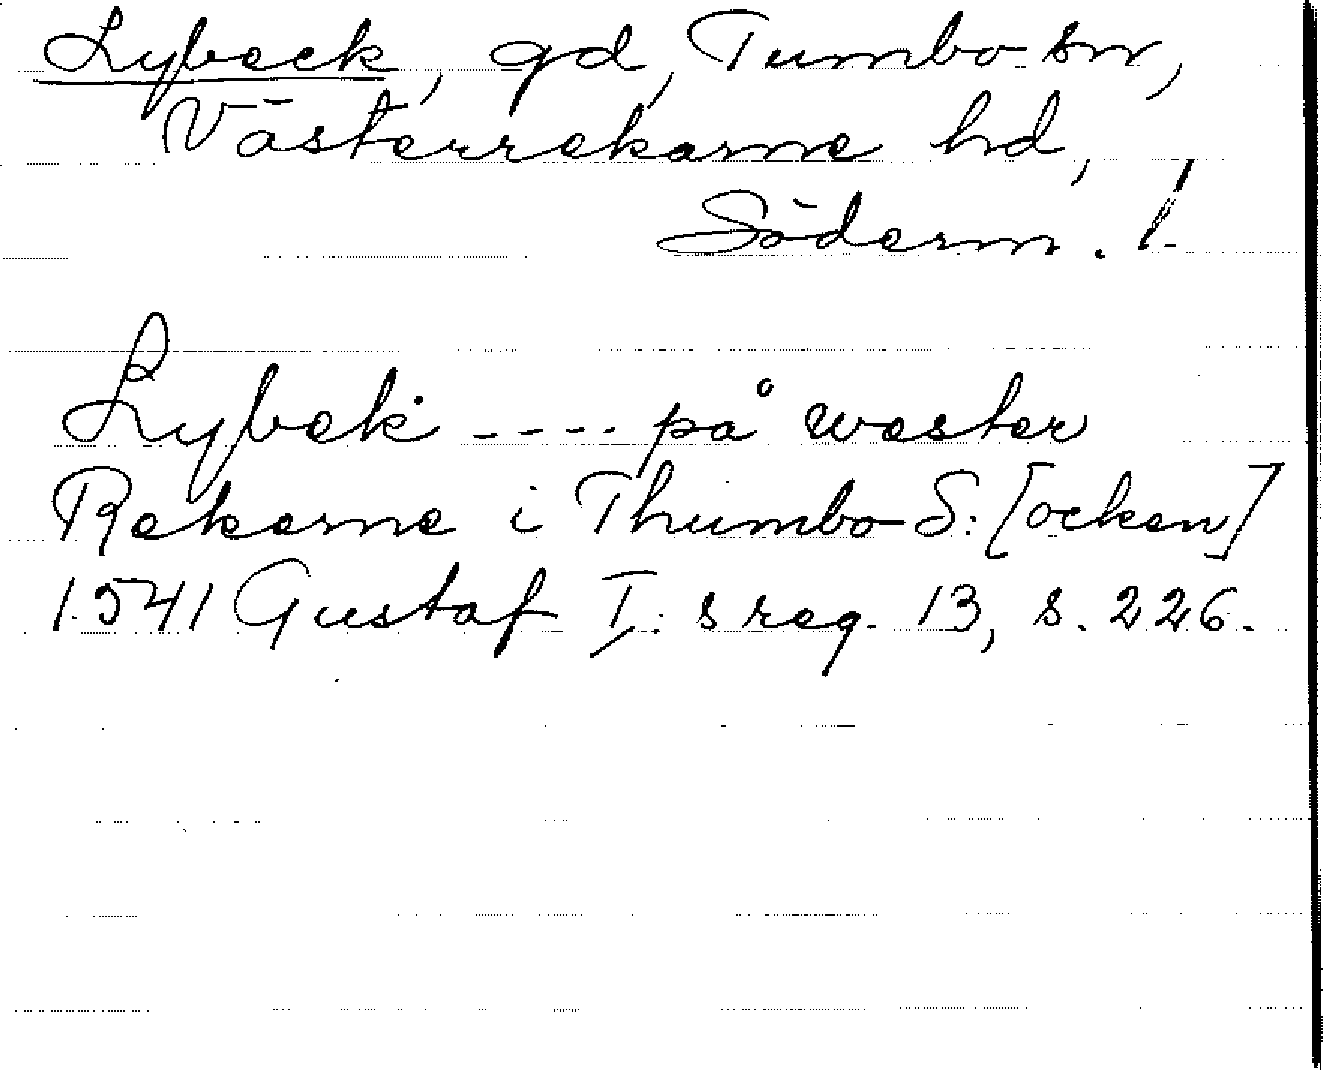 Lybeck, gd, Tumbo sn,
Västerrekarne hd,
Söderm. l.
Lybek ---- på wester
Rekerne i Thumbo S: [ocken]
1541 Gustaf I: s reg. 13, s. 226.